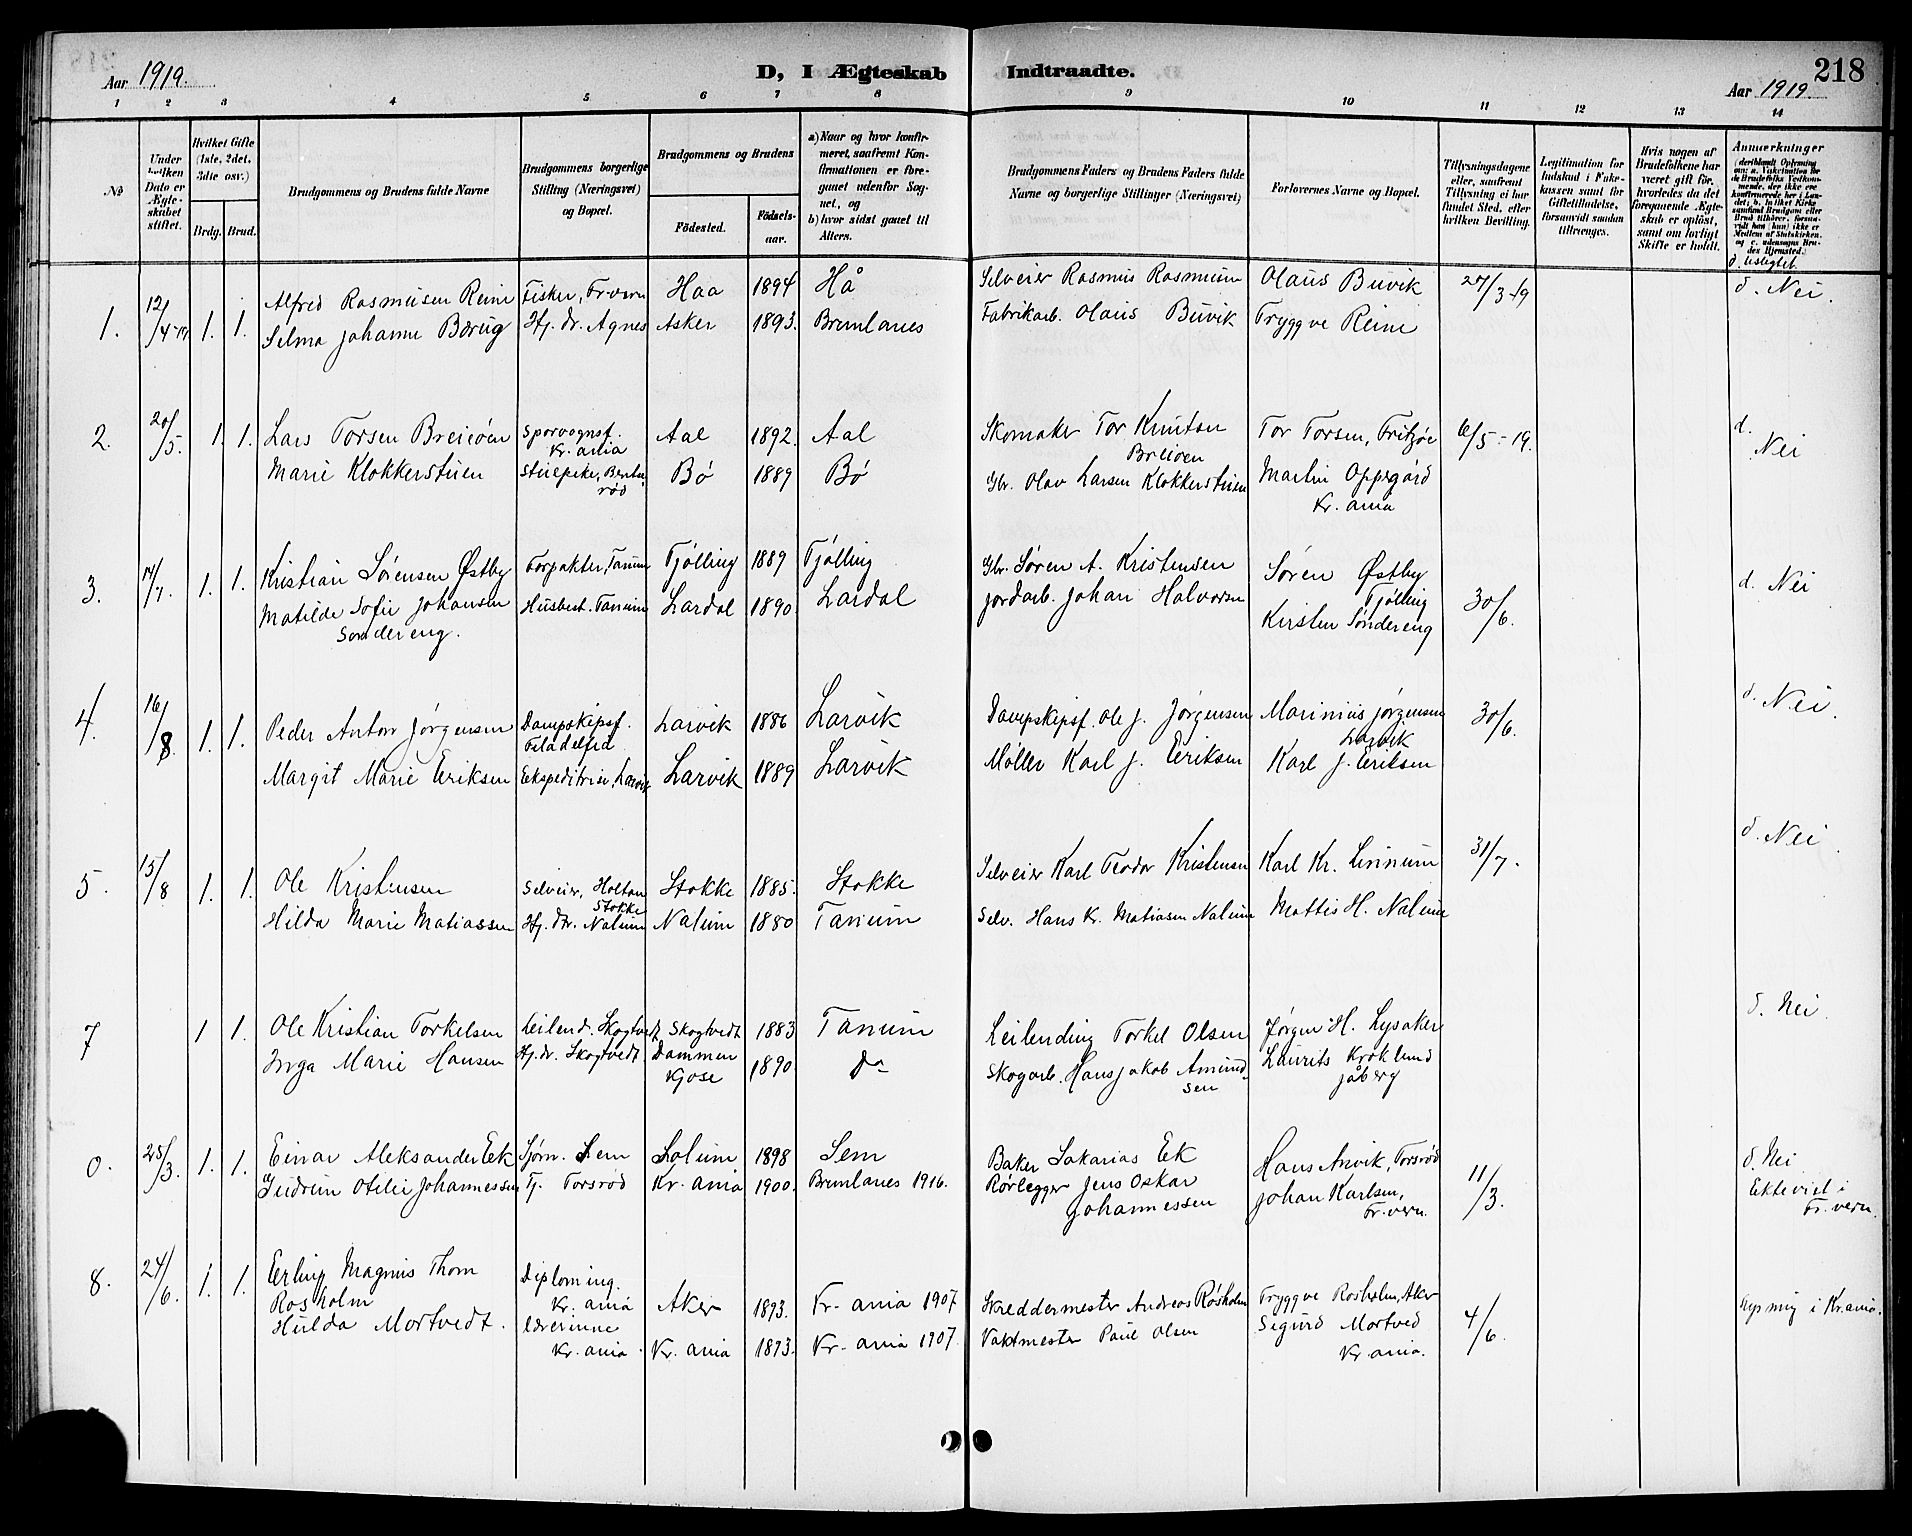 Aar 1919.
D, I Ægteskab Indtraadte.
218
Aar 1919.
1 2 3 4 5 6 7 8 9 10 11 12 13 14
No
Under hvilken Dato er Ægteskabet stiftet.
Hvilket Gifte (1ste, 2det, 3dte osv.)
Brdg. Brud.
Brudgommens og Brudens fulde Navne
Brudgommens borgerlige Stilling (Næringsvei) og Bopæl.
Brudgommens og Brudens
Födested.
Födselsaar.
a) Naar og hvor konfirmeret, saafremt Konfirmationen er foregaaet udenfor Sognet, og
b) hvor sidst gaaet til Alters.
Brudgommens Faders og Brudens Faders fulde Navne og borgerlige Stillinger (Næringsvei)
Forlovernes Navne og Bopæl.
Tillysningsdagene eller, saafremt Tillysning ei har fundet Sted, efter hvilken Bevilling.
Legitimation for Indskud i Enkekassen samt for Giftetilladelse, forsaavidt saadan tiltrænges.
Hvis nogen af Brudefolkene har været gift för, hvorledes da det foregaaende Ægteskab er oplöst, samt om lovligt Skifte er holdt.
Anmærkninger
d. uslegtet.
1. 12/4-19 1. 1. Alfred Rasmusen Reine Fisker, Fr.vern Haa 1894 Hå Selveier Rasmus Rasmusen Olaus Buvik 27/3-19 d. Nei.
Selma Johanne Bærug Hj. dr. Agnes Asker 1893. Brunlanes Fabrikarb. Olaus Buvik Tryggve Reine
2. 20/5. 1. 1. Lars Torsen Breieöen Sporvognsf. Kr.ania Aal 1892. Aal Skomaker Tor Knutsen Breiöen Tor Torsen, Fritzöe 6/5-19. d. Nei
Marie Klokkerstuen Stuepike, Bö 1889 Bö Gbr. Olav Larsen Klokkerstuen Martin Oppegård Kr. ania
3. 14/7. 1. 1. Kristian Sörensen Østby Forpakter, Tanum Tjölling 1889 Tjölling Gbr. Sören A. Kristensen Sören Østby Tjölling 30/6. d. Nei
Matilde Sofie Johansen Söndereng. Husbest. Tanum Lardal 1890 Lardal Jordarb. Johan Halvorsen Kirsten Söndereng
4. 16/8. 1. 1. Peder Anton Jörgensen Dampskipsf. Filadelfia Larvik 1886 Larvik Dampskipsf. Ole J. Jörgensen Marinius Jörgensen Larvik 30/6. d. Nei.
Margit Marie Eriksen Ekspeditrise, Larvik Larvik 1889 Larvik Möller Karl J. Eriksen Karl J. Eriksen
5. 15/8 1. 1. Ole Kristensen Selveier, Holtan Stokke Stokke 1885. Stokke Selveier Karl Teodor Kristensen Karl Kr. Linnum 31/7. d. Nei.
Hilda Marie Matiassen Hj. dr. Nalum Nalum 1880 Tanum Selv. Hans Kr. Matiasen Nalum Mattis H. Nalum
7 1 1. Ole Kristian Torkelsen Leilend. Skogtvedt Skogtvedt 1883 Tanum Leilending Torkel Olsen Jörgen H. Lysaker d. Nei.
Inga Marie Hansen Hj.dr. Skogtvedt Dammen Kjose 1890. Do Skogarb. Hans Jakob Amundsen Laurits Kroklund Jåberg
0. 25/3. 1. 1. Einar Aleksander Eek Sjöm. Sem Solum 1898 Sem Baker Sakarias Eek Hans Anvik, Torsröd 11/3. d. Nei
Gudrun Otelie Johannessen Tj. Torsröd Kr. ania 1900. Brunlanes 1916. Rörlegger Jens Oskar Johannessen Johan Karlsen, Fr.vern. Ektevied i Fr.vern.
8. 24/6. 1. 1. Erling Magnus Thom Rosholm Diploming. Kr. ania Aker 1893. Kr. ania 1907 Skreddermester Andreas Rosholm Tryggve Rosholm, Aker 4/6. lysning i Kr.ania.
Hulda Mortvedt. Lærerinne Kr. ania. Kr. ania 1893. Kr. ania 1907. Vaktmester Paul Olsen Sigurd Mortved Kr. ania.